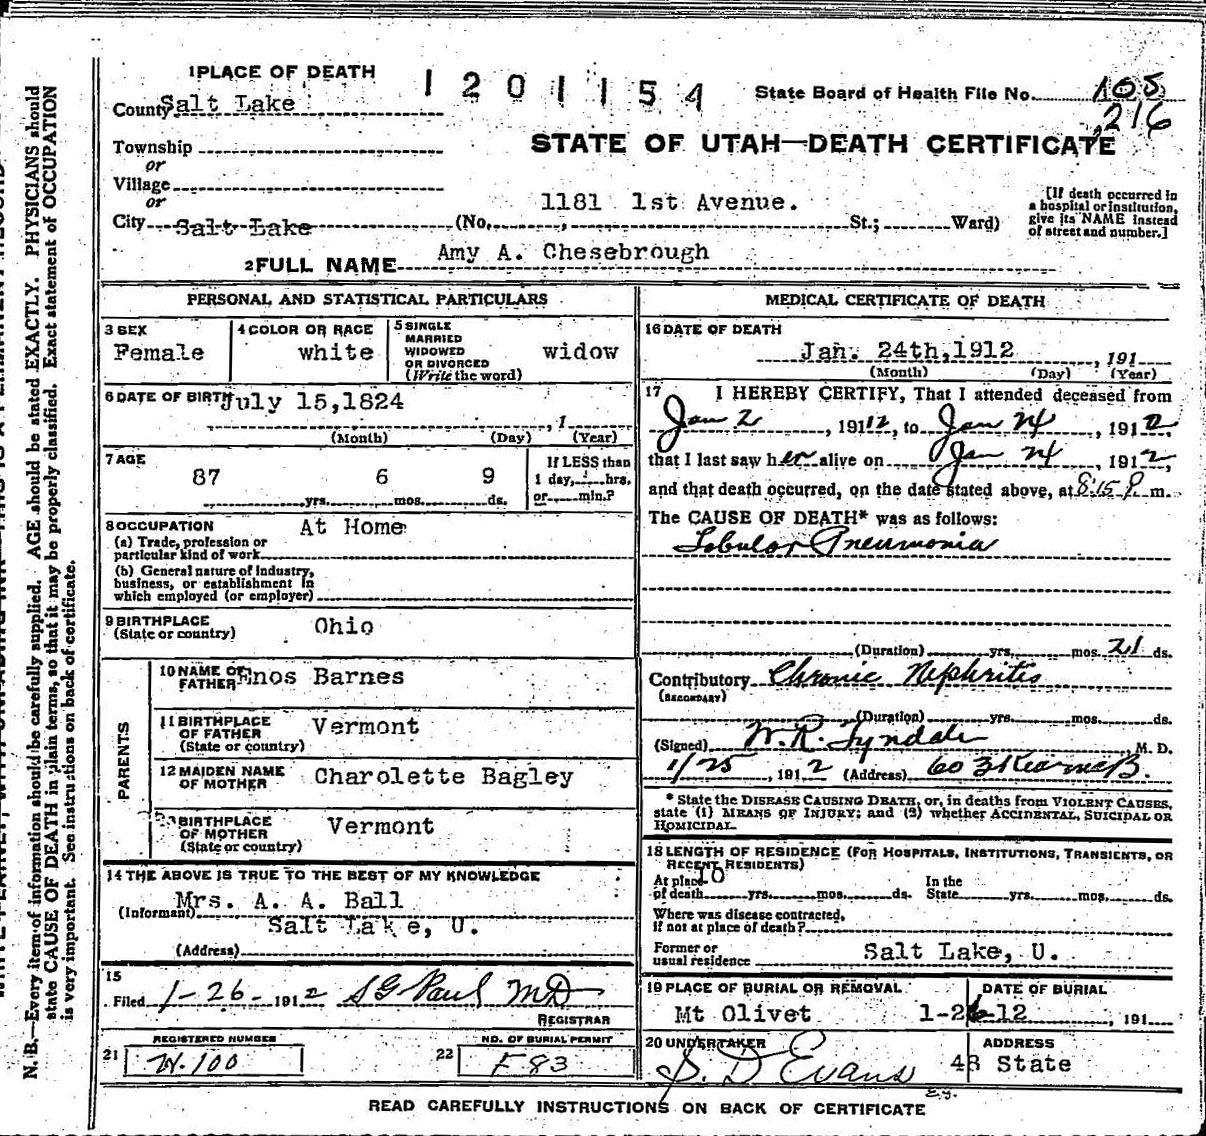 1 PLACE OF DEATH
1201154
State Board of Health File No. 105
County Salt Lake
216
STATE OF UTAH—DEATH CERTIFICATE
Township
or
Village
or
1181 1st Avenue.
City Salt Lake (No. , St.; Ward)
[If death occurred in
a hospital or institution,
give its NAME instead
of street and number.]
2 FULL NAME Amy A. Chesebrough
PERSONAL AND STATISTICAL PARTICULARS
3 SEX
Female
4 COLOR OR RACE
white
5 SINGLE
MARRIED
WIDOWED
OR DIVORCED
(Write the word)
widow
6 DATE OF BIRTH July 15,1824
, 1
(Month) (Day) (Year)
7 AGE
87 6 9
yrs. mos. ds.
If LESS than
1 day, hrs.
or min.?
8 OCCUPATION At Home
(a) Trade, profession or
particular kind of work
(b) General nature of industry,
business, or establishment in
which employed (or employer)
9 BIRTHPLACE
(State or country) Ohio
PARENTS
10 NAME OF
FATHER Enos Barnes
11 BIRTHPLACE
OF FATHER
(State or country) Vermont
12 MAIDEN NAME
OF MOTHER Charolette Bagley
BIRTHPLACE
OF MOTHER
(State or country) Vermont
14 THE ABOVE IS TRUE TO THE BEST OF MY KNOWLEDGE
(Informant) Mrs. A. A. Ball
Salt Lake, U.
(Address)
15
Filed 1-26- 1912 S G Paul MD
REGISTRAR
REGISTERED NUMBER
21 H.100
NO. OF BURIAL PERMIT
22 F 83
MEDICAL CERTIFICATE OF DEATH
16 DATE OF DEATH
Jan. 24th,1912 , 191
(Month) (Day) (Year)
17 I HEREBY CERTIFY, That I attended deceased from
Jan 2 , 1912, to Jan 24 , 1912,
that I last saw her alive on Jan 24 , 1912,
and that death occurred, on the date stated above, at 8:15 P. m.
The CAUSE OF DEATH* was as follows:
Lobular Pneumonia
(Duration) yrs. mos. 21 ds.
Contributory Chronic Nephritis
(SECONDARY)
(Duration) yrs. mos. ds.
(Signed) W. R. Tyndale , M. D.
1/25 , 1912 (Address) 603 Kearns B.
* State the DISEASE CAUSING DEATH, or, in deaths from VIOLENT CAUSES,
state (1) MEANS OF INJURY; and (2) whether ACCIDENTAL, SUICIDAL OR
HOMICIDAL.
18 LENGTH OF RESIDENCE (FOR HOSPITALS, INSTITUTIONS, TRANSIENTS, OR
RECENT RESIDENTS)
At place 10 In the
of death yrs. mos. ds. State yrs. mos. ds.
Where was disease contracted,
if not at place of death?
Former or
usual residence Salt Lake, U.
19 PLACE OF BURIAL OR REMOVAL
Mt Olivet
DATE OF BURIAL
1-26-12 , 191
20 UNDERTAKER
S. D Evans
ADDRESS
48 State
READ CAREFULLY INSTRUCTIONS ON BACK OF CERTIFICATE
N. B.—Every item of information should be carefully supplied. AGE should be stated EXACTLY. PHYSICIANS should
state CAUSE OF DEATH in plain terms, so that it may be properly classified. Exact statement of OCCUPATION
is very important. See instructions on back of certificate.